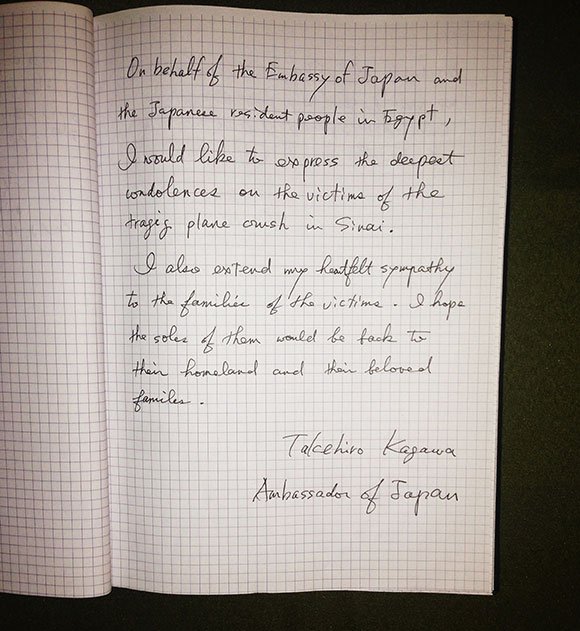 On behalf of the Embassy of Japan and
the Japanese resident people in Egypt,
I would like to express the deepest
condolences on the victims of the
tragig plane crush in Sinai.
I also extend my heatfelt sympathy
to the families of the victims. I hope
the soles of them would be back to
their homeland and their beloved
familes.
Takehiro Kagawa
Ambassador of Japan